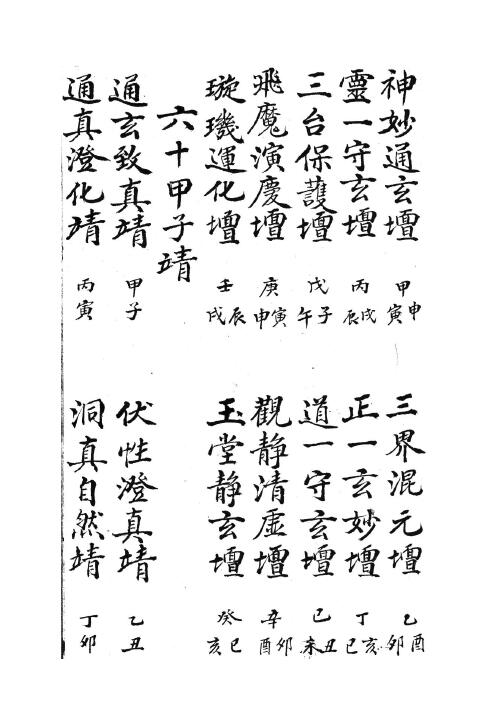 神妙通玄壇 甲申寅 三界混元壇 乙酉卯
靈一守玄壇 丙戌辰 正一玄妙壇 丁亥巳
三台保護壇 戊子午 道一守玄壇 己丑未
飛魔演慶壇 庚寅申 觀靜清虛壇 辛卯酉
璇璣運化壇 壬辰戌 玉堂靜玄壇 癸巳亥
六十甲子靖
通玄致真靖 甲子 伏性澄真靖 乙丑
通真澄化靖 丙寅 洞真自然靖 丁卯